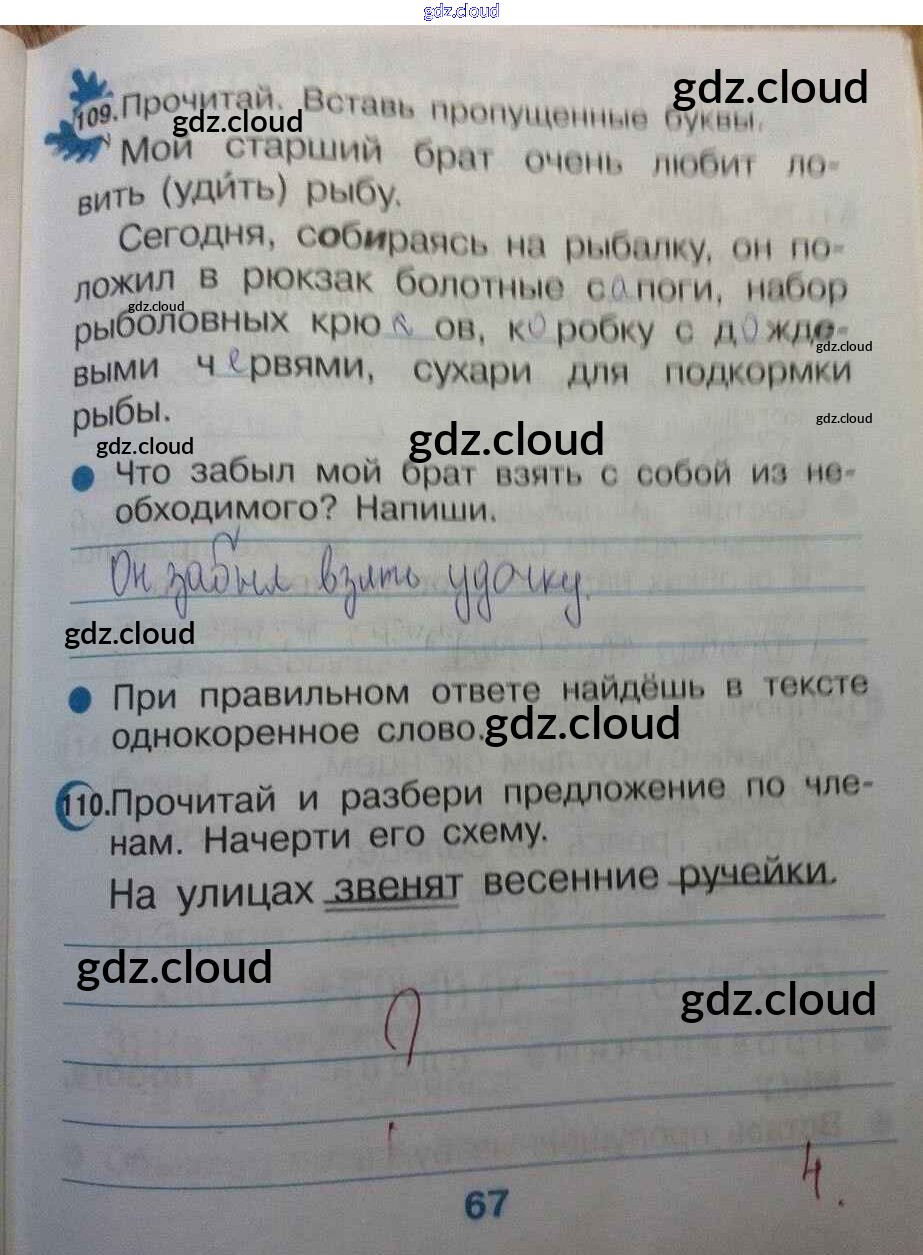 gdz.cloud
109. Прочитай. Вставь пропущенные буквы.
gdz.cloud
gdz.cloud
Мой старший брат очень любит ло-
вить (уди́ть) рыбу.
Сегодня, собираясь на рыбалку, он по-
ложил в рюкзак болотные сапоги, набор
gdz.cloud
рыболовных крюков, коробку с дожде-
gdz.cloud
выми червями, сухари для подкормки
рыбы.
gdz.cloud
gdz.cloud
gdz.cloud
Что забыл мой брат взять с собой из не-
обходимого? Напиши.
Он забыл взять удочку.
gdz.cloud
При правильном ответе найдёшь в тексте
однокоренное слово.
gdz.cloud
110. Прочитай и разбери предложение по чле-
нам. Начерти его схему.
На улицах звенят весенние ручейки.
gdz.cloud
gdz.cloud
?
4.
67